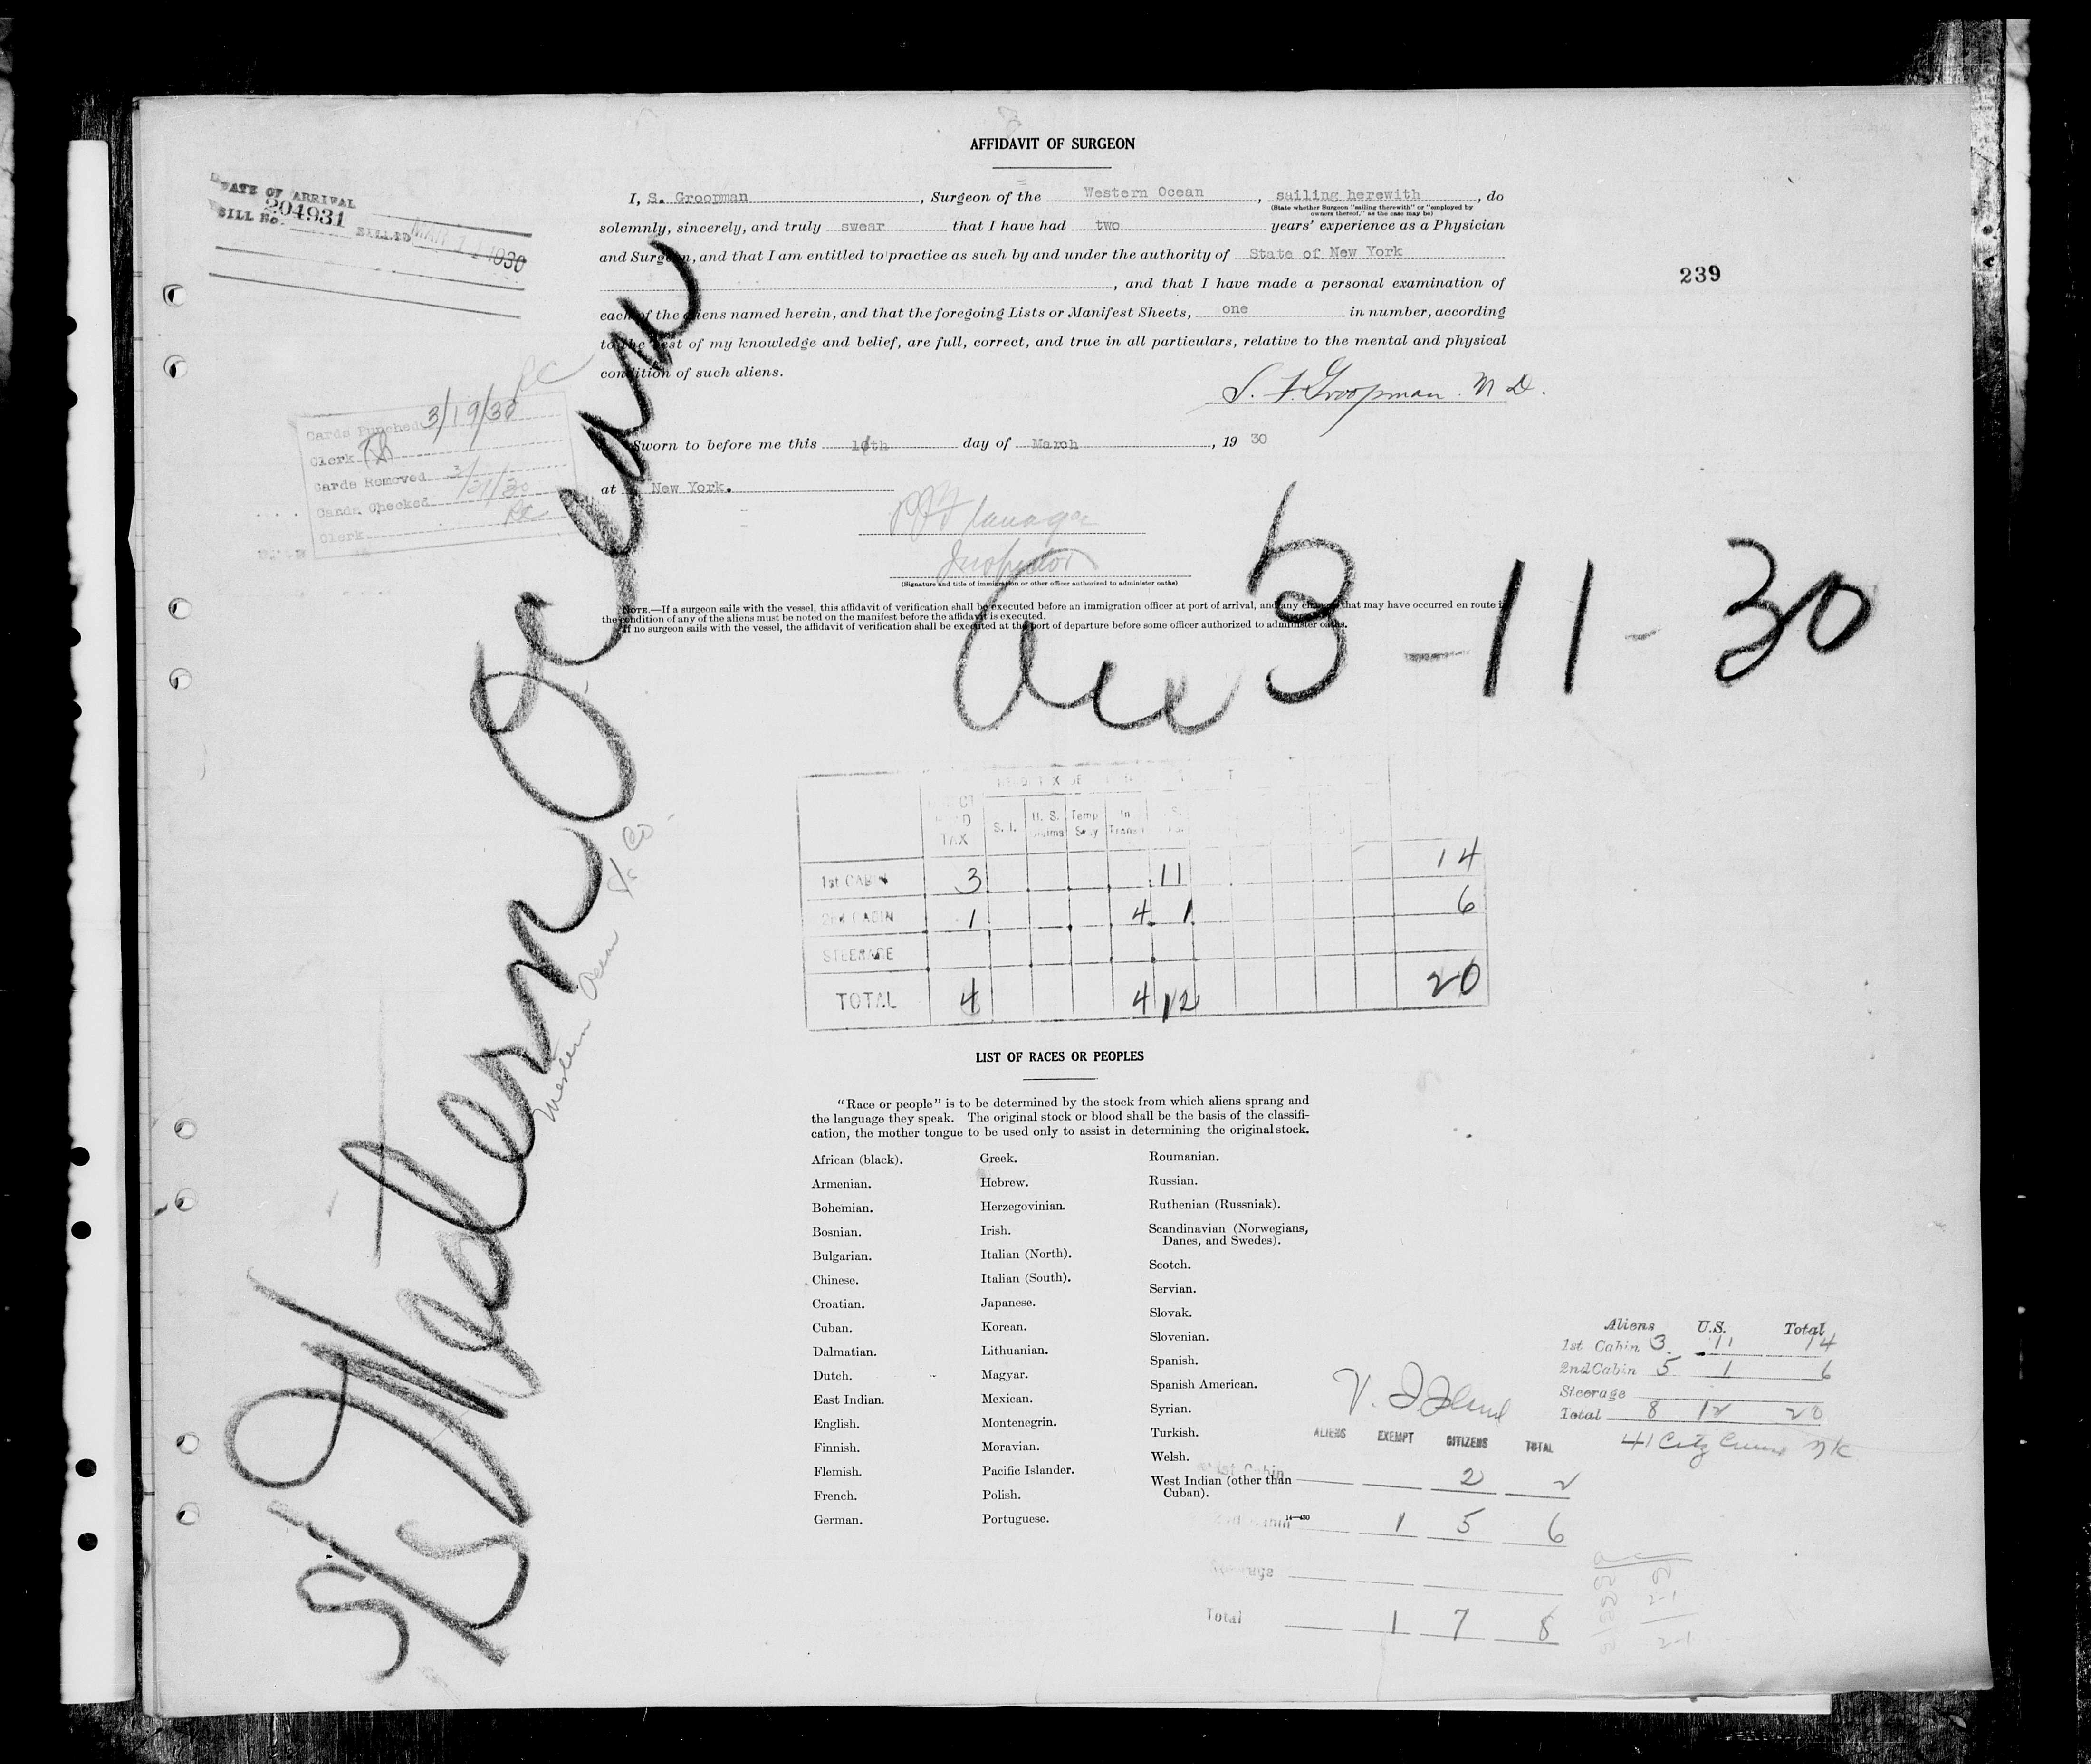 AFFIDAVIT OF SURGEON
DATE OF ARRIVAL
BILL No. 204931
BILLED MAR 1930
I, S. Groopman, Surgeon of the Western Ocean, sailing herewith, do
(State whether Surgeon "sailing therewith" or "employed by
owners thereof," as the case may be)
solemnly, sincerely, and truly swear that I have had two years' experience as a Physician
and Surgeon, and that I am entitled to practice as such by and under the authority of State of New York
, and that I have made a personal examination of
each of the aliens named herein, and that the foregoing Lists or Manifest Sheets, one in number, according
to the best of my knowledge and belief, are full, correct, and true in all particulars, relative to the mental and physical
condition of such aliens.
239
S. A. Groopman. M D.
Cards Punched 3/19/30
Clerk
Cards Removed 3/21/30
Cards Checked
Clerk
Sworn to before me this 11th day of March, 1930
at New York.
Inspector
(Signature and title of immigration or other officer authorized to administer oaths)
NOTE.—If a surgeon sails with the vessel, this affidavit of verification shall be executed before an immigration officer at port of arrival, and any changes that may have occurred en route in
the condition of any of the aliens must be noted on the manifest before the affidavit is executed.
If no surgeon sails with the vessel, the affidavit of verification shall be executed at the port of departure before some officer authorized to administer oaths.
S/S Western Ocean
Western Ocean & Co
Arr 3-11-30
TAX S. I. U. S. Temp Stay In Transit
1st CABIN 3 11 14
2nd CABIN 1 4 1 6
STEERAGE
TOTAL 4 4 12 20
LIST OF RACES OR PEOPLES
"Race or people" is to be determined by the stock from which aliens sprang and
the language they speak. The original stock or blood shall be the basis of the classifi-
cation, the mother tongue to be used only to assist in determining the original stock.
African (black).
Armenian.
Bohemian.
Bosnian.
Bulgarian.
Chinese.
Croatian.
Cuban.
Dalmatian.
Dutch.
East Indian.
English.
Finnish.
Flemish.
French.
German.
Greek.
Hebrew.
Herzegovinian.
Irish.
Italian (North).
Italian (South).
Japanese.
Korean.
Lithuanian.
Magyar.
Mexican.
Montenegrin.
Moravian.
Pacific Islander.
Polish.
Portuguese.
Roumanian.
Russian.
Ruthenian (Russniak).
Scandinavian (Norwegians,
Danes, and Swedes).
Scotch.
Servian.
Slovak.
Slovenian.
Spanish.
Spanish American.
Syrian.
Turkish.
Welsh.
West Indian (other than
Cuban).
14—430
Aliens U.S. Total
1st Cabin 3 11 14
2nd Cabin 5 1 6
Steerage
Total 8 12 20
ALIENS EXEMPT CITIZENS TOTAL
1st Cabin 2 2
1 5 6
Total 1 7 8